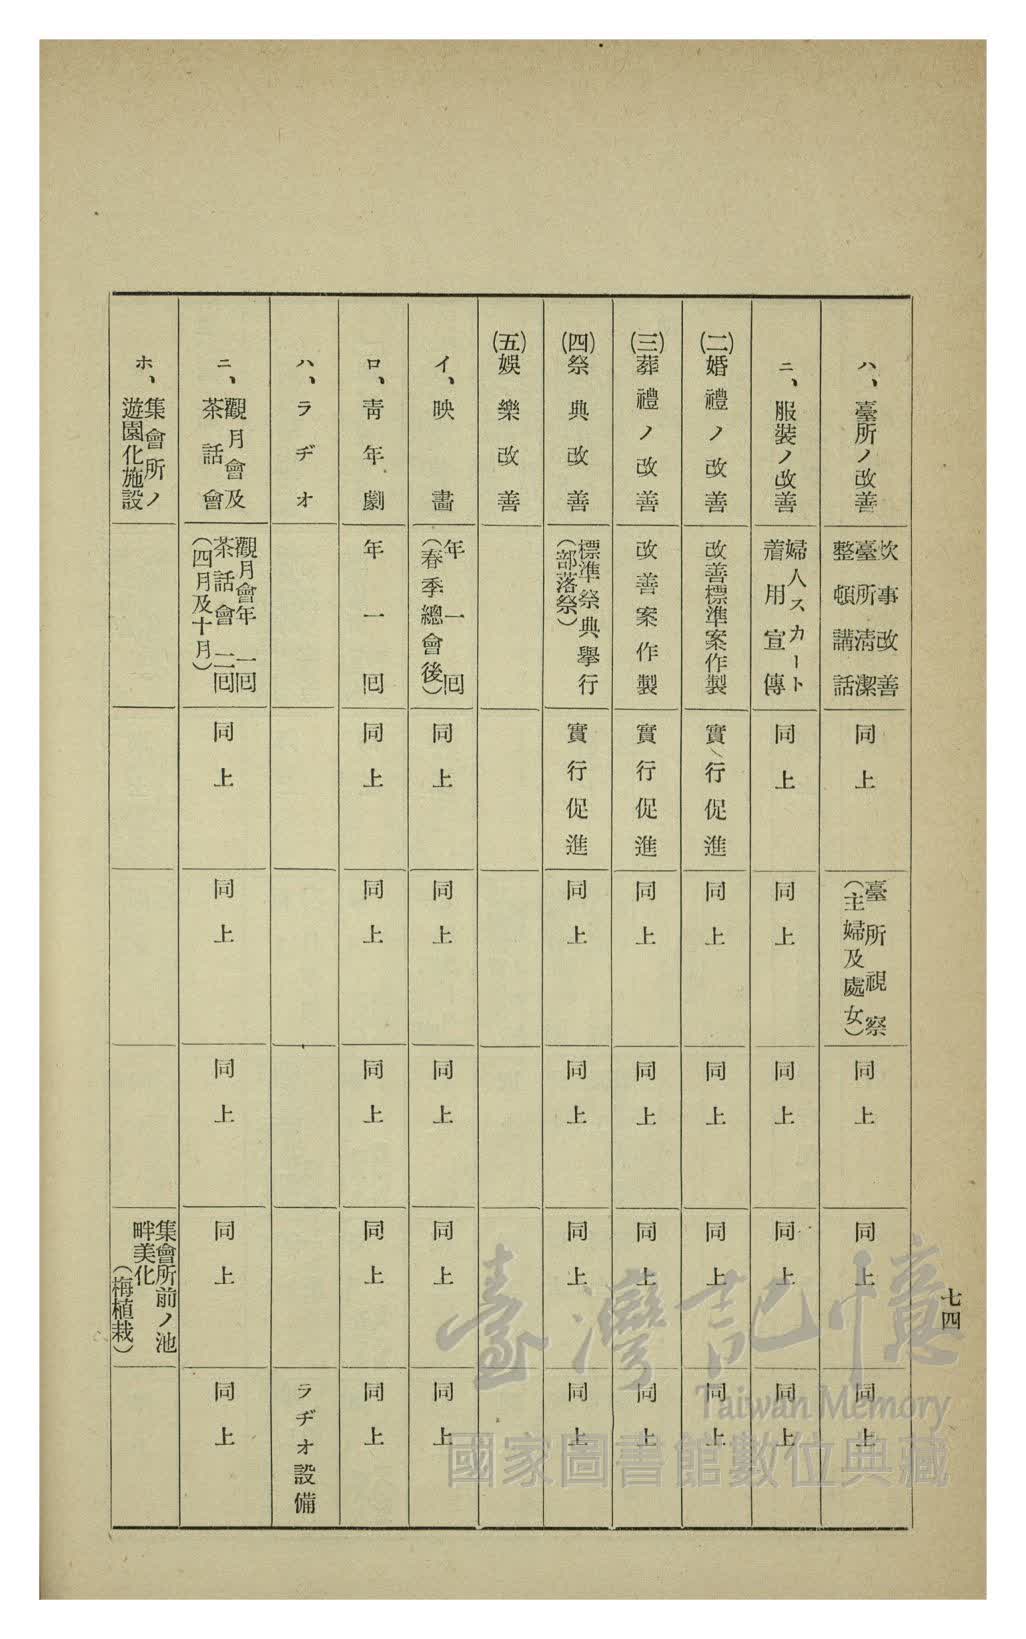 七四
ハ、臺所ノ改善
炊事改善
臺所淸潔
整頓講話
同上
臺所視察
(主婦及處女)
同上
同上
同上
ニ、服裝ノ改善
婦人スカート
着用宣傳
同上
同上
同上
同上
同上
(二)婚禮ノ改善
改善標準案作製
實行促進
同上
同上
同上
同上
(三)葬禮ノ改善
改善案作製
實行促進
同上
同上
同上
同上
(四)祭典改善
標準祭典擧行
(部落祭)
實行促進
同上
同上
同上
同上
(五)娛樂改善
イ、映畫
年一回
(春季總會後)
同上
同上
同上
同上
同上
ロ、靑年劇
年一回
同上
同上
同上
同上
同上
ハ、ラヂオ
ラヂオ設備
ニ、觀月會及
茶話會
觀月會年一回
茶話會二回
(四月及十月)
同上
同上
同上
同上
同上
ホ、集會所ノ
遊園化施設
集會所前ノ池
畔美化
(梅植栽)
臺灣記憶
Taiwan Memory
國家圖書館數位典藏